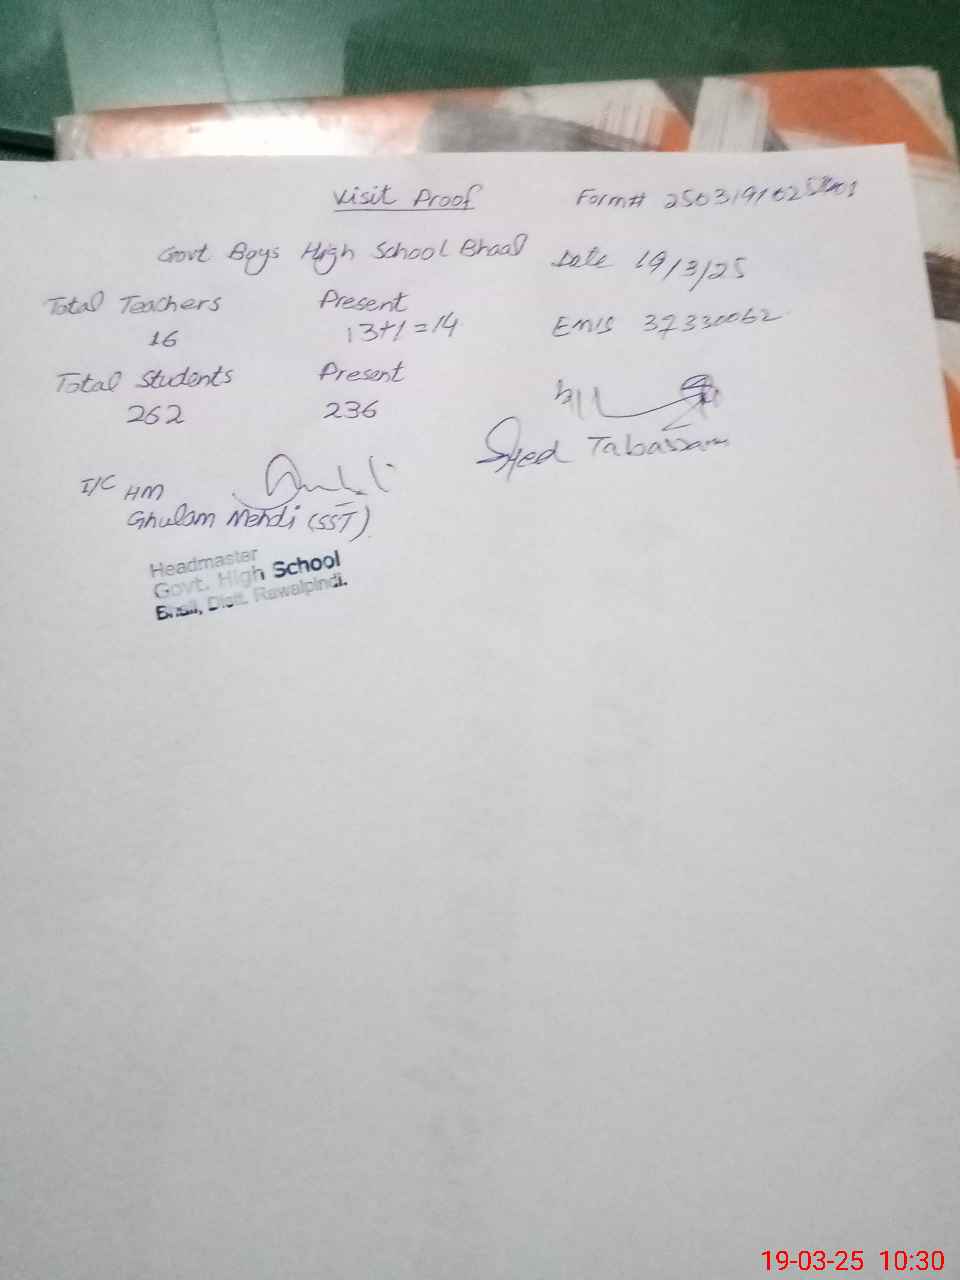 Visit Proof
Form#
Govt Boys High School Bhaal
Date 19/3/25
Total Teachers Present
16 13+1=14
Emis 37330062
Total Students Present
262 236
Syed Tabassam
I/C HM
Ghulam Mehdi (SST)
Headmaster
Govt. High School
Distt. Rawalpindi.
19-03-25 10:30